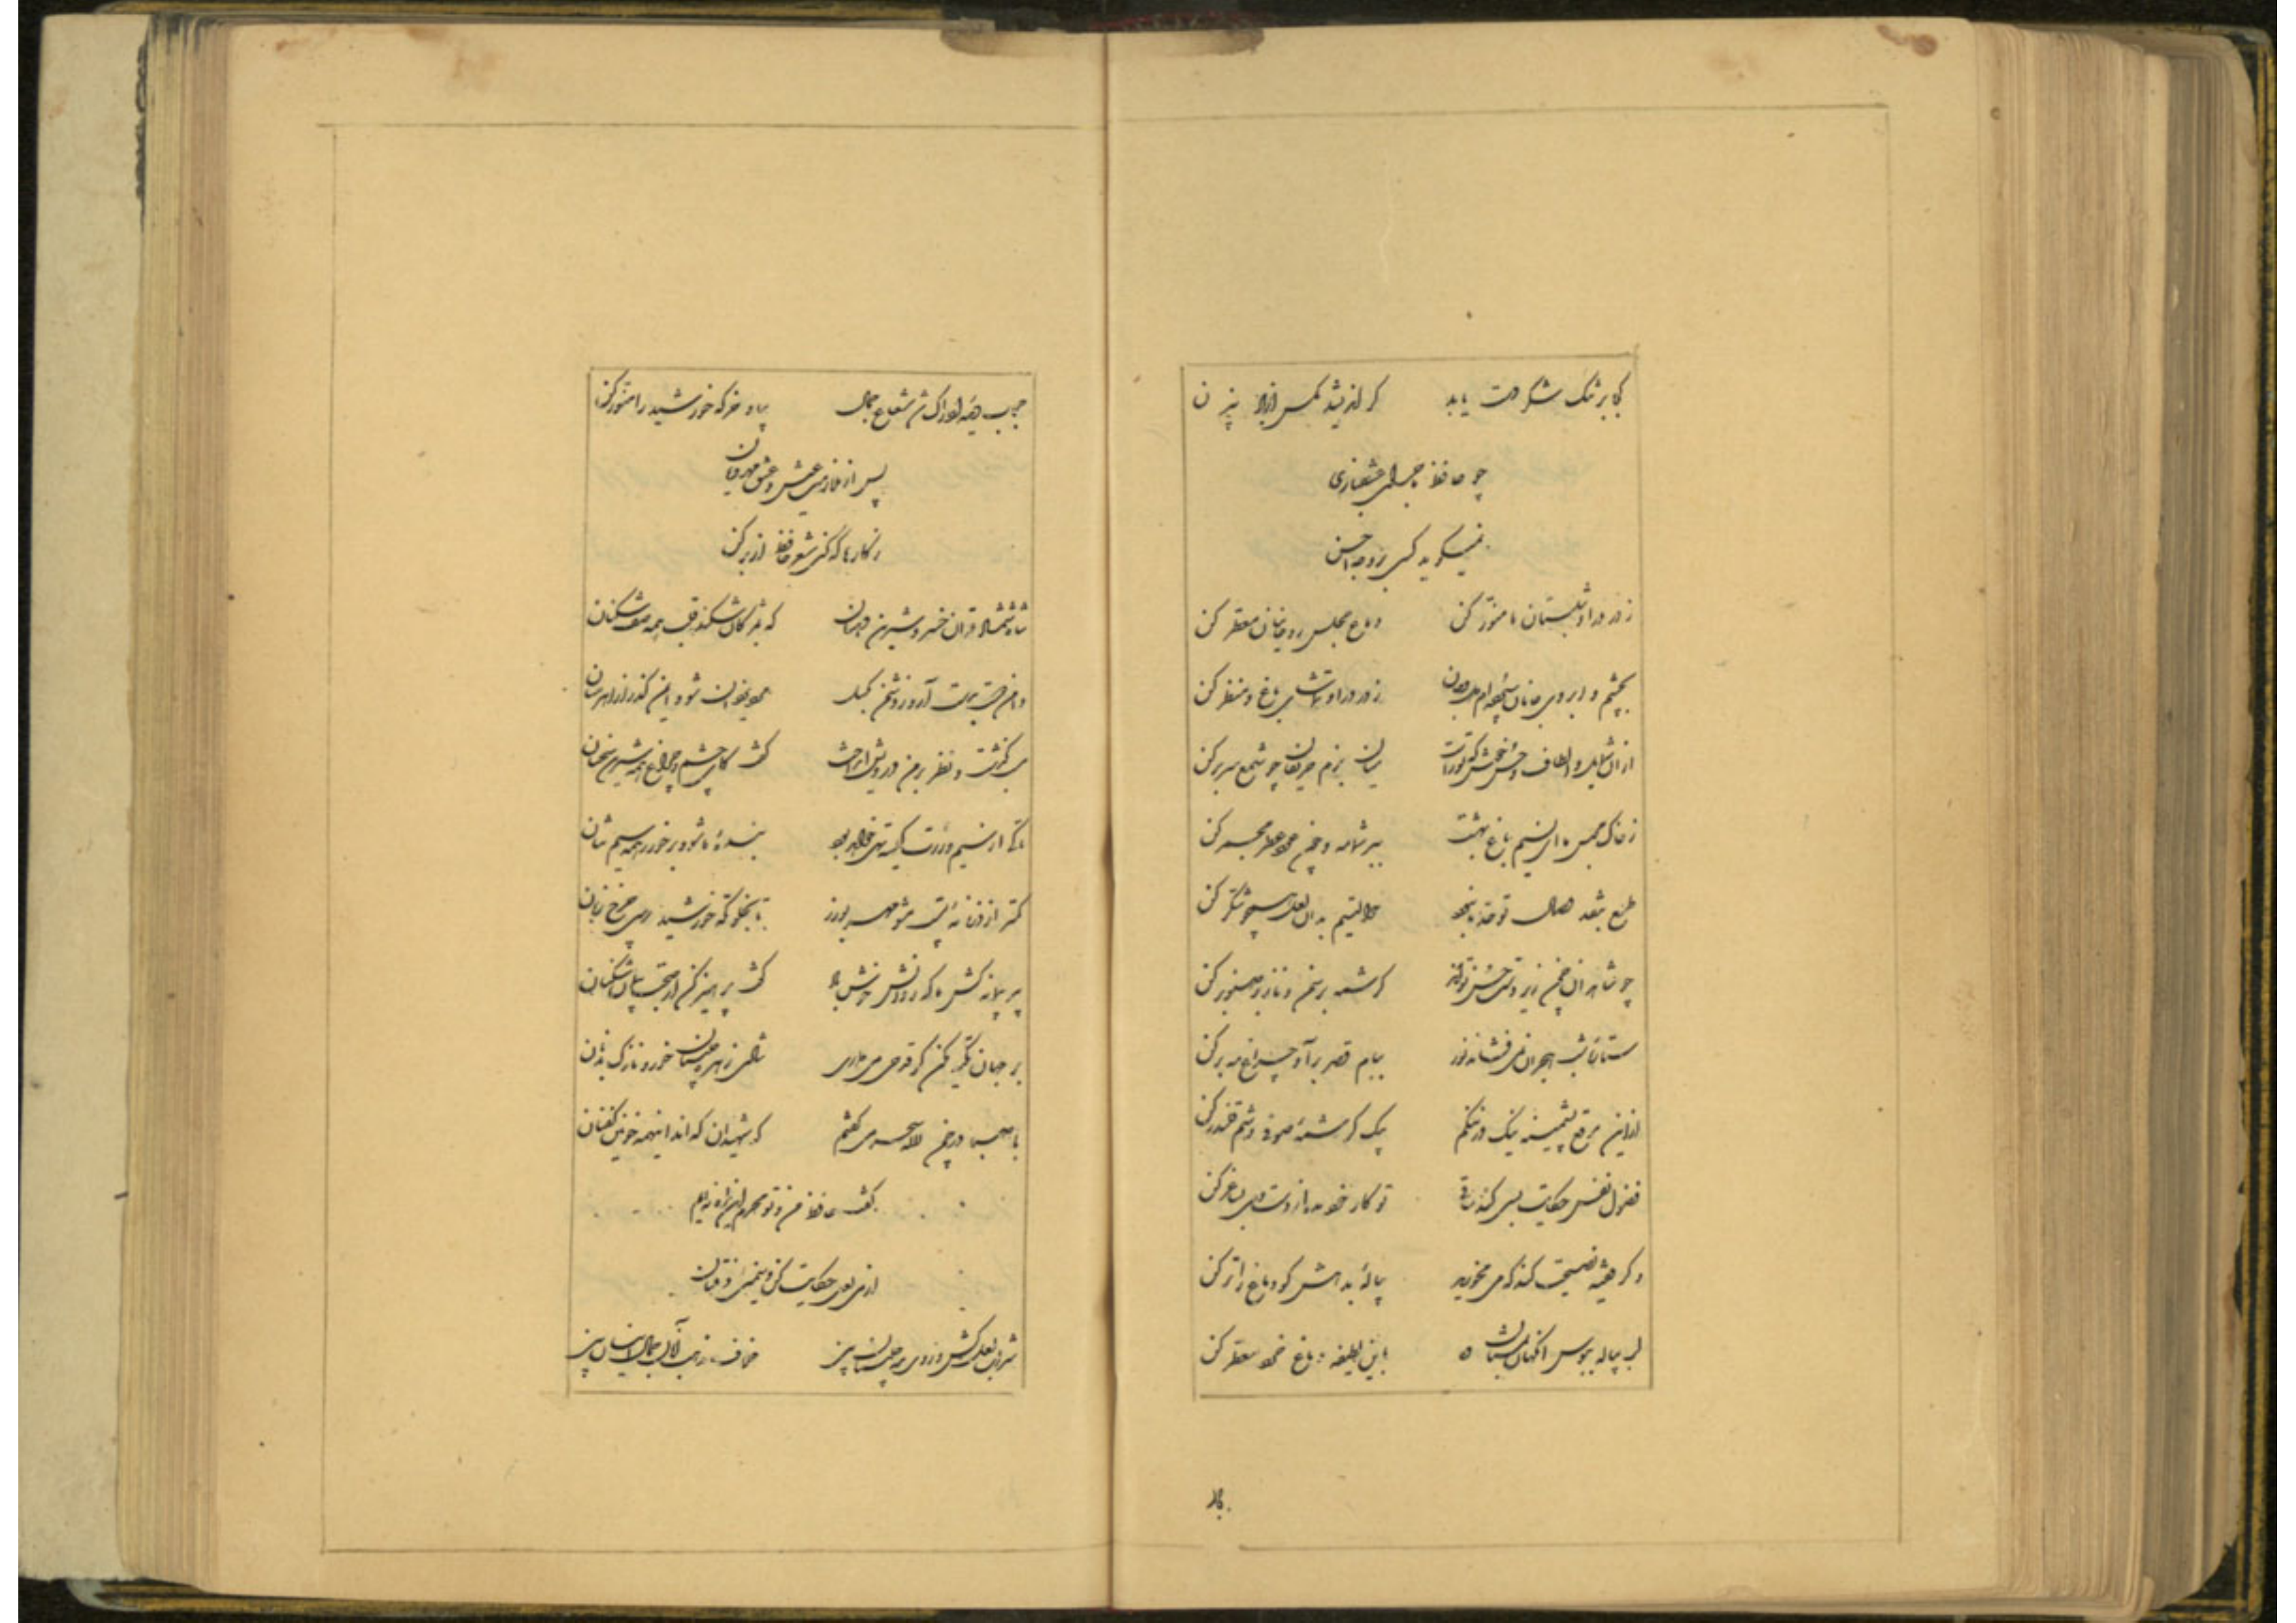 کجا بر تنک شکر دست یابد کز اندیشد مکس از باد بیزن
چو حافظ ماجرای عشقبازی
نمیکوید کسی بر وجه احسن
ز در درا و شبستان ما منور کن دماغ مجلس روحانیان معطر کن
بچشم و ابروی جانان سپرده‌ام دل و جان ز در درا و تماشای باغ و منظر کن
ازان شمایل و الطاف و حسن خوش که تراست میان بزم حریفان چو شمع سر بر کن
ز خاک مجلس ما ای نسیم باغ بهشت ببر شمامه و خود عطر مجمر کن
طمع بنقد وصال تو حد ما نبود حوالتیم بدان لعل همچو شکر کن
چو شاهدان چمن زیر دست حسن تواند کرشمه بر سمن و ناز بر صنوبر کن
ستاره شب هجران نمی فشاند نور ببام قصر برآ و چراغ مه بر کن
ازین مرقع پشمینه نیک در تنکم یک کرشمه صوفی وشم قلندر کن
فضول نفس حکایت بسی کند ساقی تو کار خود مده از دست و می بساغر کن
وکر فقیه نصیحت کند که می مخورید پیاله بدهش کو دماغ را تر کن
لب پیاله ببوس آنکهی بمستان ده باین لطیفه دماغ خرد معطر کن
حجاب دیده ادراک شد شعاع جمال بیا و خرکه خورشید را منور کن
پس از ملازمت عیش و عشق مهرویان
ز کارها که کنی شعر حافظ از بر کن
شاه شمشاد قدان خسرو شیرین دهنان که بمژکان شکند قلب همه صف شکنان
دامن دوست بدست آر و ز دشمن بکسل مرد یزدان شو و ایمن کذر از اهرمنان
می کذشت و نظر بر من درویش انداخت کفت کای چشم و چراغ همه شیرین سخنان
تا کی از سیم و زرت کیسه تهی خواهد بود بنده ما شو و بر خور ز همه سیم تنان
کمتر از ذره نه پست مشو مهر بورز تا بخلوتکه خورشید رسی چرخ زنان
پیر پیمانه کش ما که روانش خوش باد کفت پرهیز کن از صحبت پیمان شکنان
بر جهان تکیه مکن کر قدحی می داری شادی زهره جبینان خور و نازک بدنان
با صبا در چمن لاله سحر می کفتم که شهیدان که اند اینهمه خونین کفنان
کفت حافظ من و تو محرم این راز نه‌ایم
از می لعل حکایت کن و سیمین ذقنان
شراب لعل کش و روی مه جبینان بین خلاف مذهب آنان جمال اینان بین